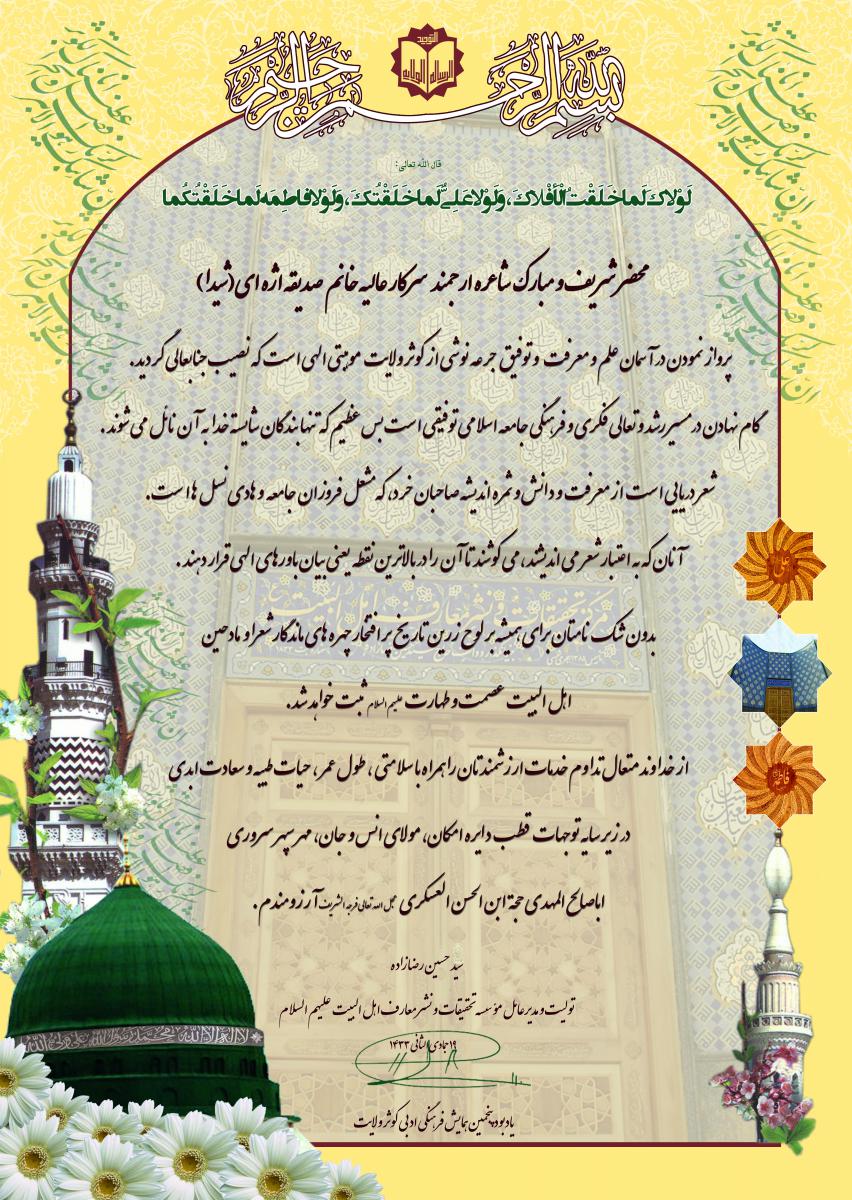 بسم الله الرحمن الرحیم
التوحید
الرساله الولایه
قال الله تعالی:
لَوْلاكَ لَما خَلَقْتُ الْأَفْلاكَ، وَلَوْلا عَلِيٌّ لَما خَلَقْتُكَ، وَلَوْلا فاطِمَه لَما خَلَقْتُكُما
محضر شریف و مبارک شاعره ارجمند سرکار عالیه خانم صدیقه اژه ای (شیدا)
پرواز نمودن در آسمان علم و معرفت و توفیق جرعه نوشی از کوثر ولایت موهبتی الهی است که نصیب جنابعالی گردید.
گام نهادن در مسیر رشد و تعالی فکری و فرهنگی جامعه اسلامی توفیقی است بس عظیم که تنها بندگان شایسته خدا به آن نائل می شوند.
شعر دریایی است از معرفت و دانش و ثمره اندیشه صاحبان خرد، که مشعل فروزان جامعه و هادی نسل ها است.
آنان که به اعتبار شعر می اندیشند، می کوشند تا آن را در بالاترین نقطه یعنی بیان باورهای الهی قرار دهند.
بدون شک نامتان برای همیشه بر لوح زرین تاریخ پر افتخار چهره های ماندگار شعرا و مادحین
اهل البیت عصمت و طهارت علیهم السلام ثبت خواهد شد.
از خداوند متعال تداوم خدمات ارزشمندتان را همراه با سلامتی، طول عمر، حیات طیبه و سعادت ابدی
در زیر سایه توجهات قطب دایره امکان، مولای انس و جان، مهر سپهر سروری
اباصالح المهدی حجة ابن الحسن العسکری عجل الله تعالی فرجه الشریف آرزومندم.
سید حسین رضازاده
تولیت و مدیرعامل مؤسسه تحقیقات و نشر معارف اهل البیت علیهم السلام
۱۹ جمادی الثانی ۱۴۳۳
یادبود پنجمین همایش فرهنگی ادبی کوثر ولایت
علی
فاطمه